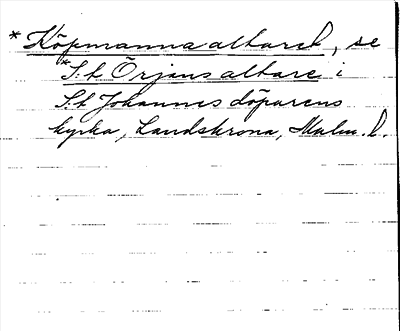 *Köpmannaaltaret, se
*S:t Örjans altare i
S:t Johannes döparens
kyrka, Landskrona, Malm. l.